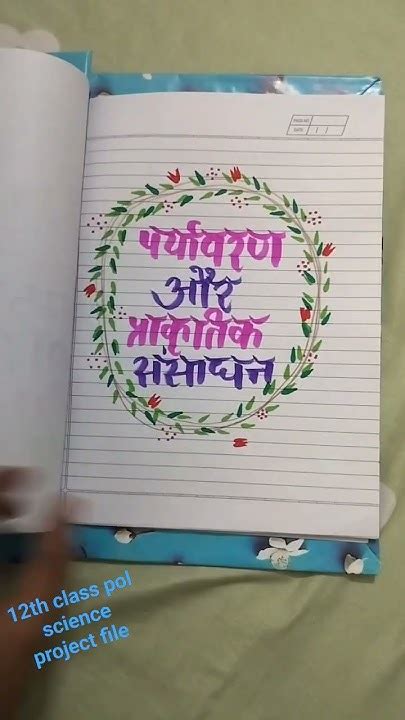 PAGE NO.
DATE
पर्यावरण
और
प्राकृतिक
संसाधन
12th class pol
science
project file